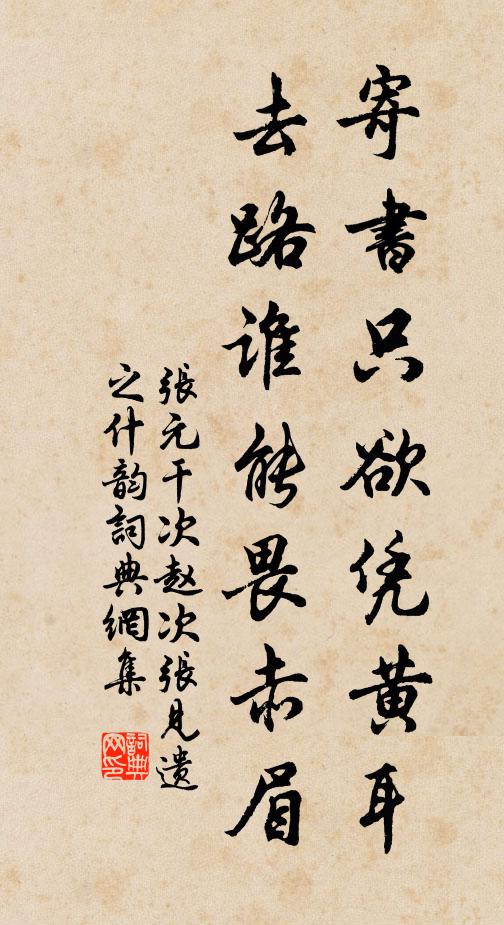 寄書只欲凭黄耳
去路谁能畏赤眉
張元干次赵次張見遺
之什韵詞典網集
詞典網印